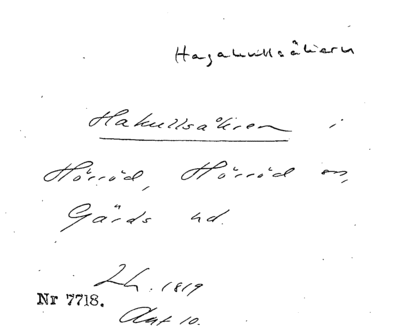 Hagakullsåkern
Hakullsåkren i
Hörröd, Hörröd sn,
Gärds hd.
Lh. 1819
Nr 7718.
Akt 10.